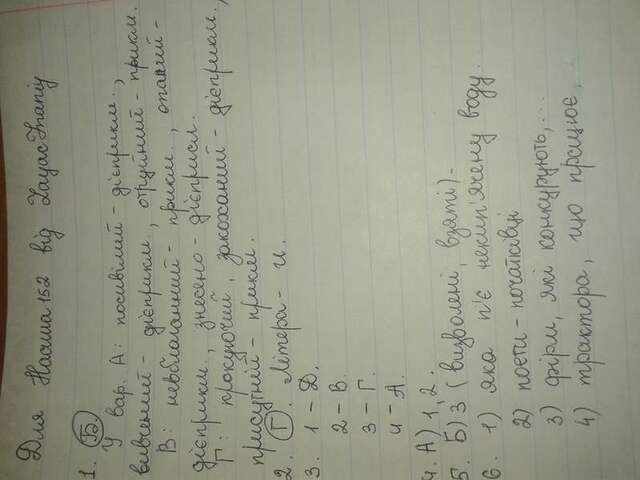 Для Наоша152 від ZayacZnaniy
1. Б
У вар. А: посивілий - дієприкм.,
вивчений - дієприкм., отруйний - прикм.
В: невблаганний - прикм., опалий -
дієприкм., знесено - дієприсл.
Г: працюючий, закоханий - дієприкм.,
присутній - прикм.
2. Г. Літера - и.
3. 1 - Д.
2 - В.
3 - Г.
4 - А.
4. А) 1, 2.
5. Б) 3 (визволені, взяті).
6. 1) яка п'є некип'ячену воду.
2) поети - початківці
3) фірм, які конкурують,...
4) трактора, що працює,..